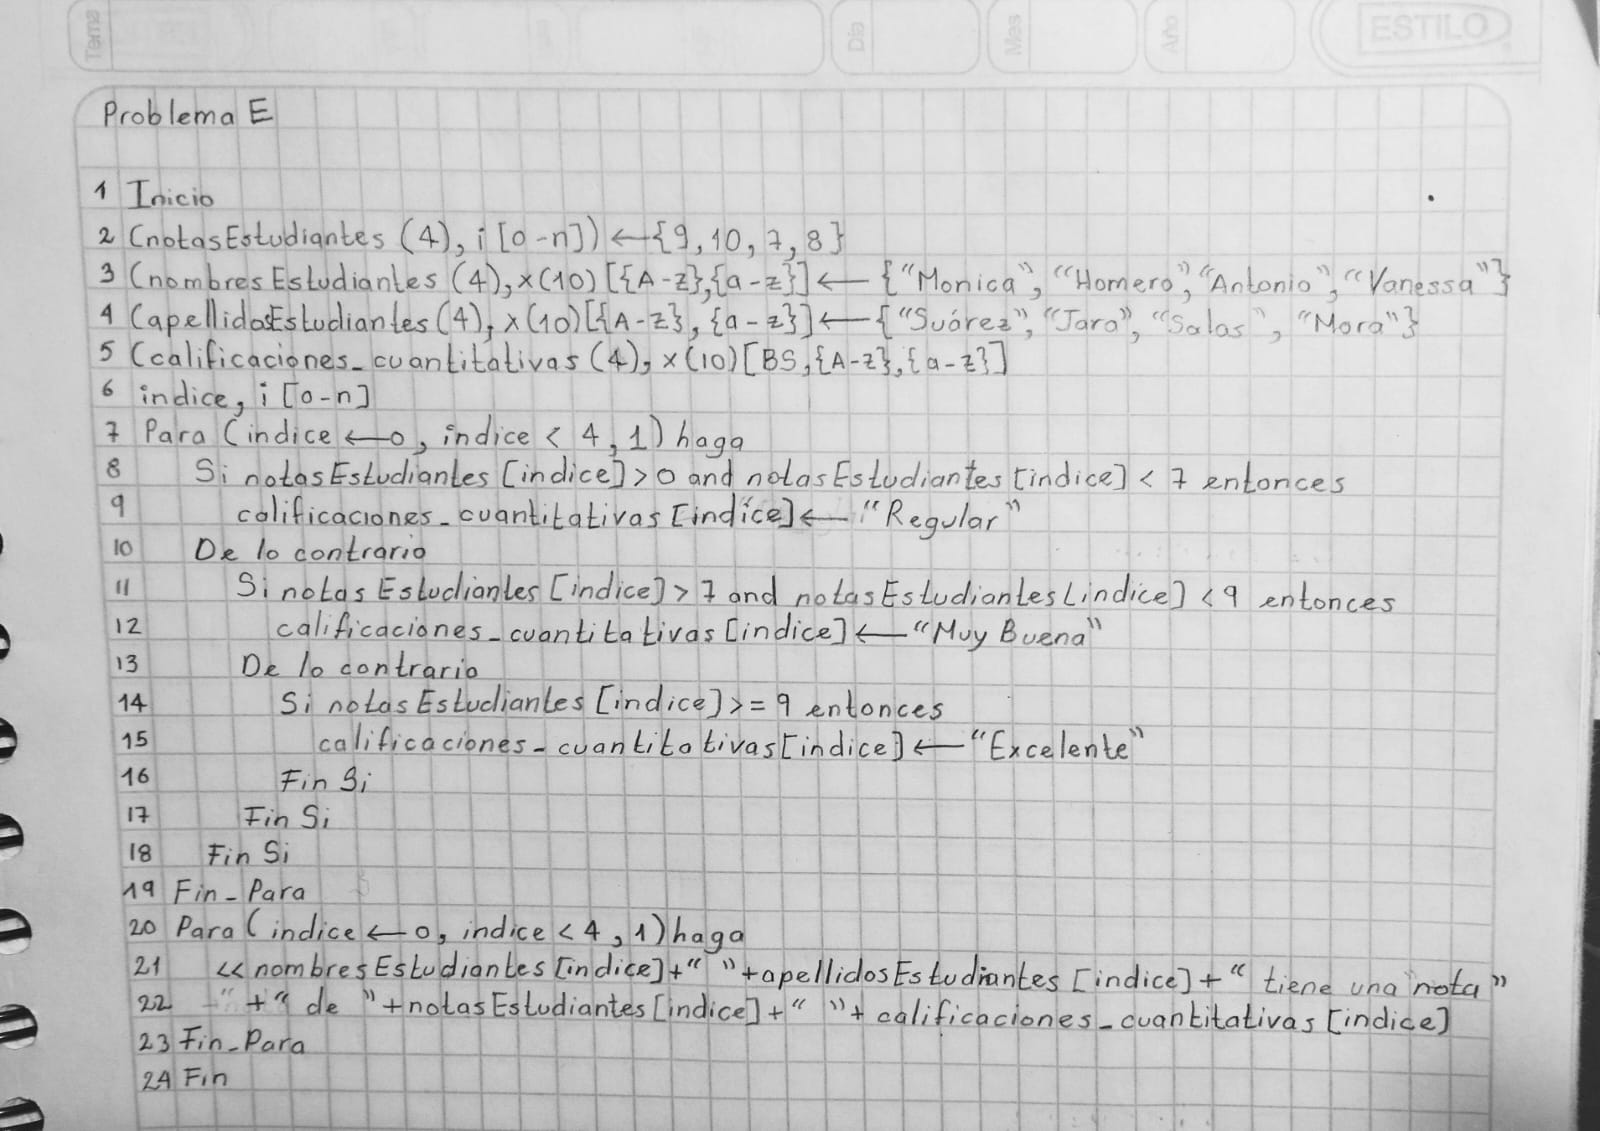 Tema
Dia
Mes
Año
ESTILO
Problema E
1 Inicio
2 (notasEstudiantes (4), i [0-n]) ← {9, 10, 7, 8}
3 (nombresEstudiantes (4), x(10) [{A-z},{a-z}] ← {"Monica", "Homero", "Antonio", "Vanessa"}
4 (apellidosEstudiantes (4), x(10)[{A-z}, {a-z}] ← {"Suárez", "Jara", "Salas", "Mora"}
5 (calificaciones_cuantitativas (4), x(10) [BS, {A-z}, {a-z}]
6 indice, i [0-n]
7 Para (indice ← 0, indice < 4, 1) haga
8 Si notasEstudiantes [indice] > 0 and notasEstudiantes [indice] < 7 entonces
9 calificaciones_cuantitativas [indice] ← "Regular"
10 De lo contrario
11 Si notasEstudiantes [indice] > 7 and notasEstudiantes [indice] < 9 entonces
12 calificaciones_cuantitativas [indice] ← "Muy Buena"
13 De lo contrario
14 Si notasEstudiantes [indice] >= 9 entonces
15 calificaciones_cuantitativas [indice] ← "Excelente"
16 Fin Si
17 Fin Si
18 Fin Si
19 Fin_Para
20 Para (indice ← 0, indice < 4, 1) haga
21 << nombresEstudiantes [indice] + " " + apellidosEstudiantes [indice] + " tiene una nota"
22 + " de " + notasEstudiantes [indice] + " " + calificaciones_cuantitativas [indice]
23 Fin_Para
24 Fin